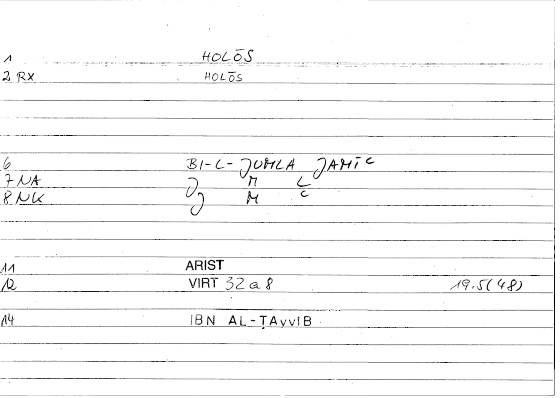 1 HOLŌS
2 RX HOLŌS
6 BI-L-JUMLA JAMĪʿ
7 NA J M L
8 NK J M ʿ
11 ARIST
12 VIRT 32 a 8 19.5(48)
14 IBN AL-ṬAYYIB